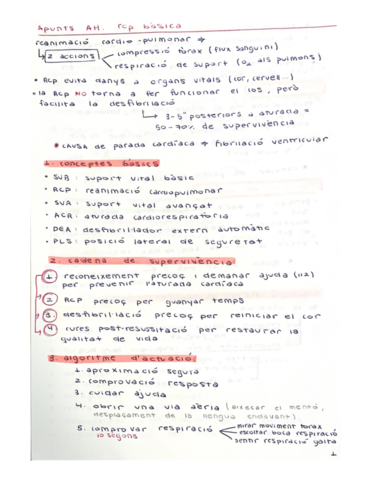 Apunts AH. rcp bàsica
reanimació cardio-pulmonar →
2 accions
compressió tòrax (flux sanguini)
respiració de suport (O2 als pulmons)
• Rcp evita danys a organs vitals (cor, cervell...)
• la Rcp NO torna a fer funcionar el cos, però
facilita la desfibrilació
3-5' posteriors a aturada =
50-70% de supervivència
* causa de parada cardíaca → fibrilació ventricular
1. conceptes bàsics
• SVB: suport vital bàsic
• RCP: reanimació cardiopulmonar
• SVA: suport vital avançat
• ACR: aturada cardiorespiratoria
• DEA: desfibrilador extern automàtic
• PLS: posició lateral de seguretat
2. cadena de supervivència
1 reconeixement precoç i demanar ajuda (112)
per prevenir l'aturada cardíaca
2 RCP precoç per guanyar temps
3. desfibrilació precoç per reiniciar el cor
4 cures post-ressucitació per restaurar la
qualitat de vida
3. algoritme d'actuació
1. aproximació segura
2. comprovació resposta
3. cridar ajuda
4. obrir una via aèria (aixecar el mentó,
desplaçament de la llengua endavant)
5. comprovar respiració
10 segons
mirar moviment torax
escoltar boca respiració
sentir respiració galta
1